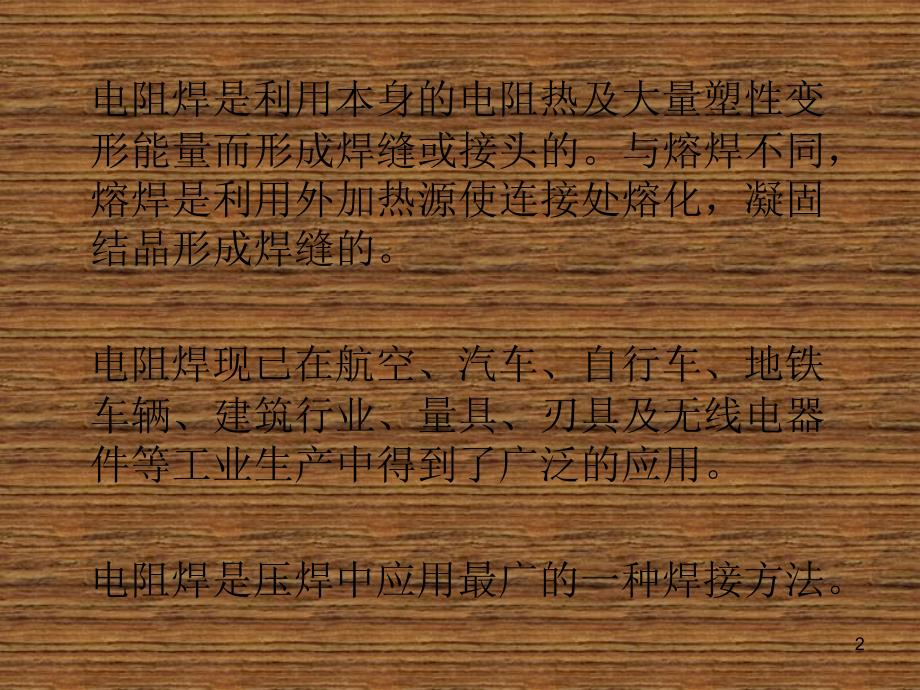 电阻焊是利用本身的电阻热及大量塑性变
形能量而形成焊缝或接头的。与熔焊不同，
熔焊是利用外加热源使连接处熔化，凝固
结晶形成焊缝的。
电阻焊现已在航空、汽车、自行车、地铁
车辆、建筑行业、量具、刃具及无线电器
件等工业生产中得到了广泛的应用。
电阻焊是压焊中应用最广的一种焊接方法。
2